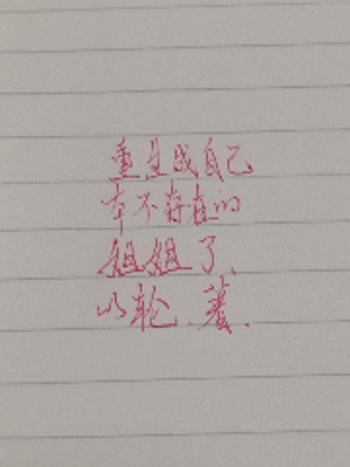 重生成自己
本不存在的
姐姐了、
以轮、著、